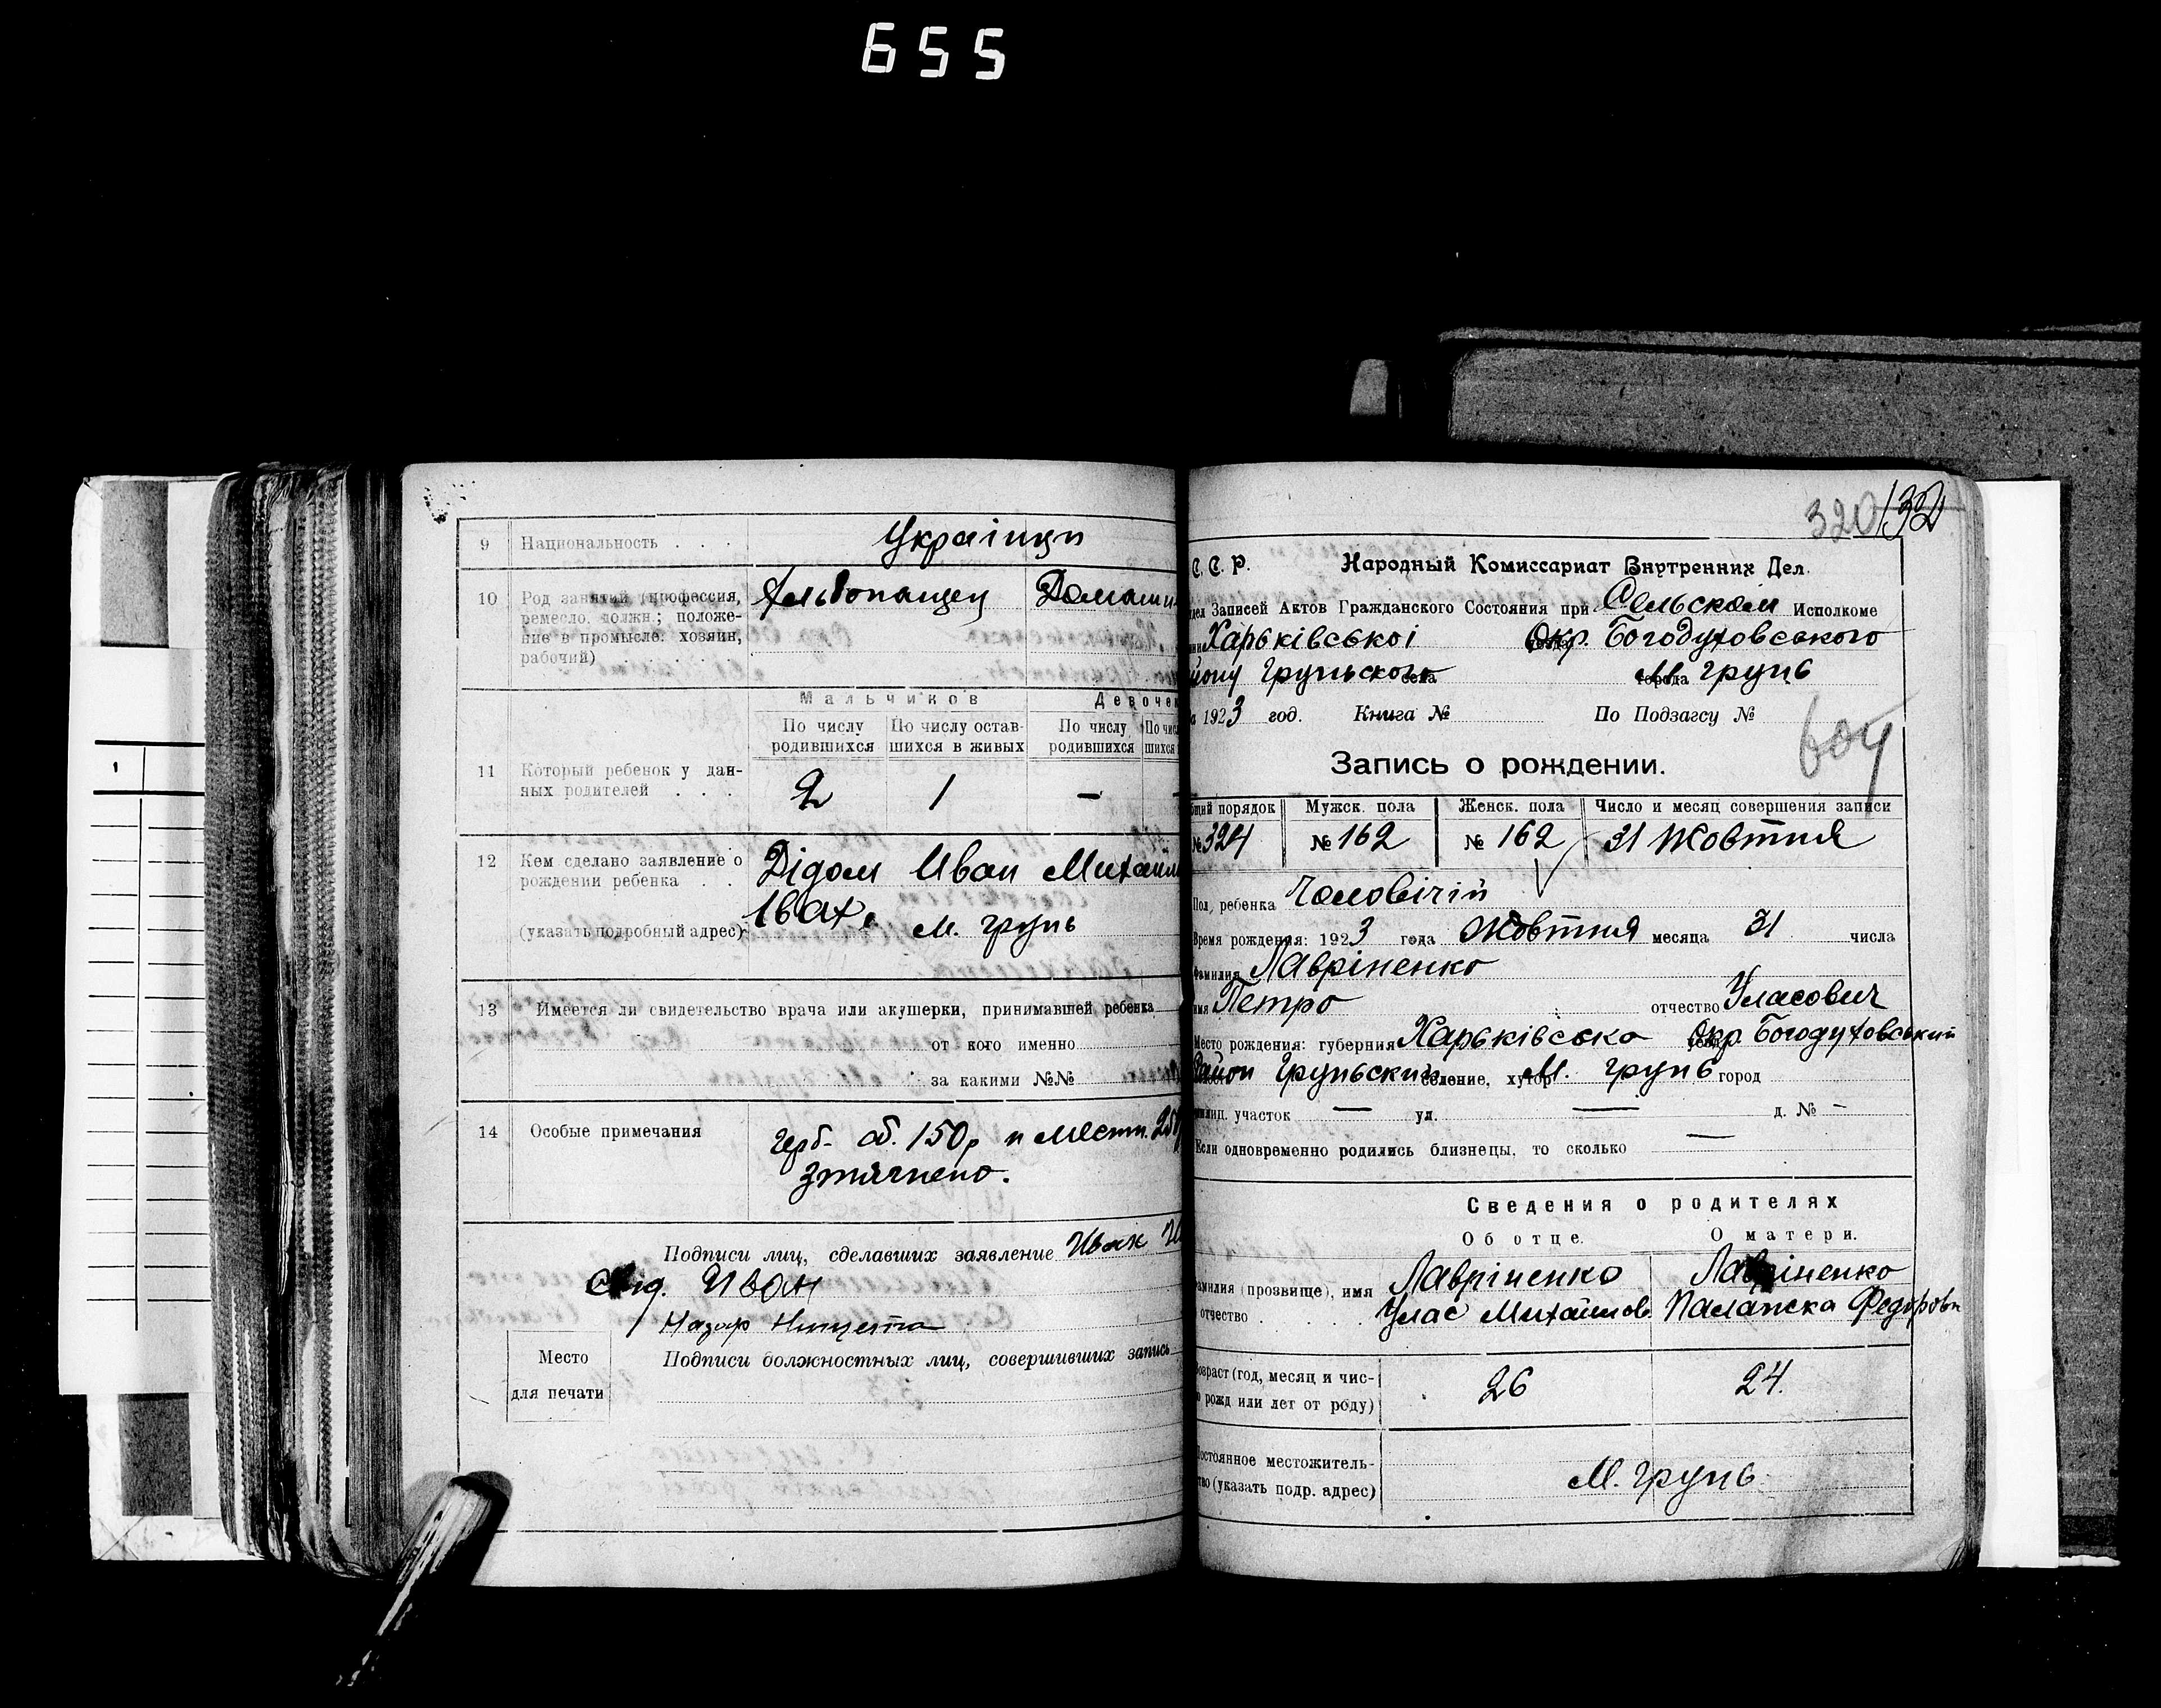 655
9 Национальность . . . Украінци
10 Род занятий (профессия, ремесло, должн.; положение в промысле: хозяин, рабочий)
Домашн
Мальчиков Девочек
По числу родившихся По числу оставшихся в живых По числу родившихся По чис шихся
11 Который ребенок у данных родителей . . . 2 1 — -
12 Кем сделано заявление о рождении ребенка . . Дідом Иван Михайл
(указать подробный адрес) м. грунь
13 Имеется ли свидетельство врача или акушерки, принимавшей ребенка
от кого именно
за какими №№
14 Особые примечания герб. сб. 150р и местн. 25
стягнено.
Подписи лиц, сделавших заявление Иван
Иван
Назар
Место для печати
Подписи должностных лиц, совершивших запись
320 132
С. С. Р. Народный Комиссариат Внутренних Дел.
дел Записей Актов Гражданского Состояния при Сельском Исполкоме
нии Харьківськоі Окр. Богодуховського
йону Грунського села города М грунь
а 1923 год. Книга № По Подзагсу №
604
Запись о рождении.
бщий порядок Мужск. пола Женск. пола Число и месяц совершения записи
№ 324 № 162 № 162 31 Жовтня
Пол, ребенка Чоловічій
Время рождения: 1923 года Жовтня месяца 31 числа
фамилия Лавріненко
имя Петро отчество Уласович
Место рождения: губерния Харьківська Окр. Богодуховський
Район Грунський селение, хутор М. грунь город
милиц. участок — ул. — д. № -
Если одновременно родились близнецы, то сколько —
Сведения о родителях
Об отце. О матери.
Фамилия (прозвище), имя Лавріненко Лавріненко
отчество . . . . Улас Михайлов. Палажка Федоровн
Возраст (год, месяц и число рожд или лет от роду) 26 24.
Постоянное местожительство (указать подр. адрес) М. грунь.